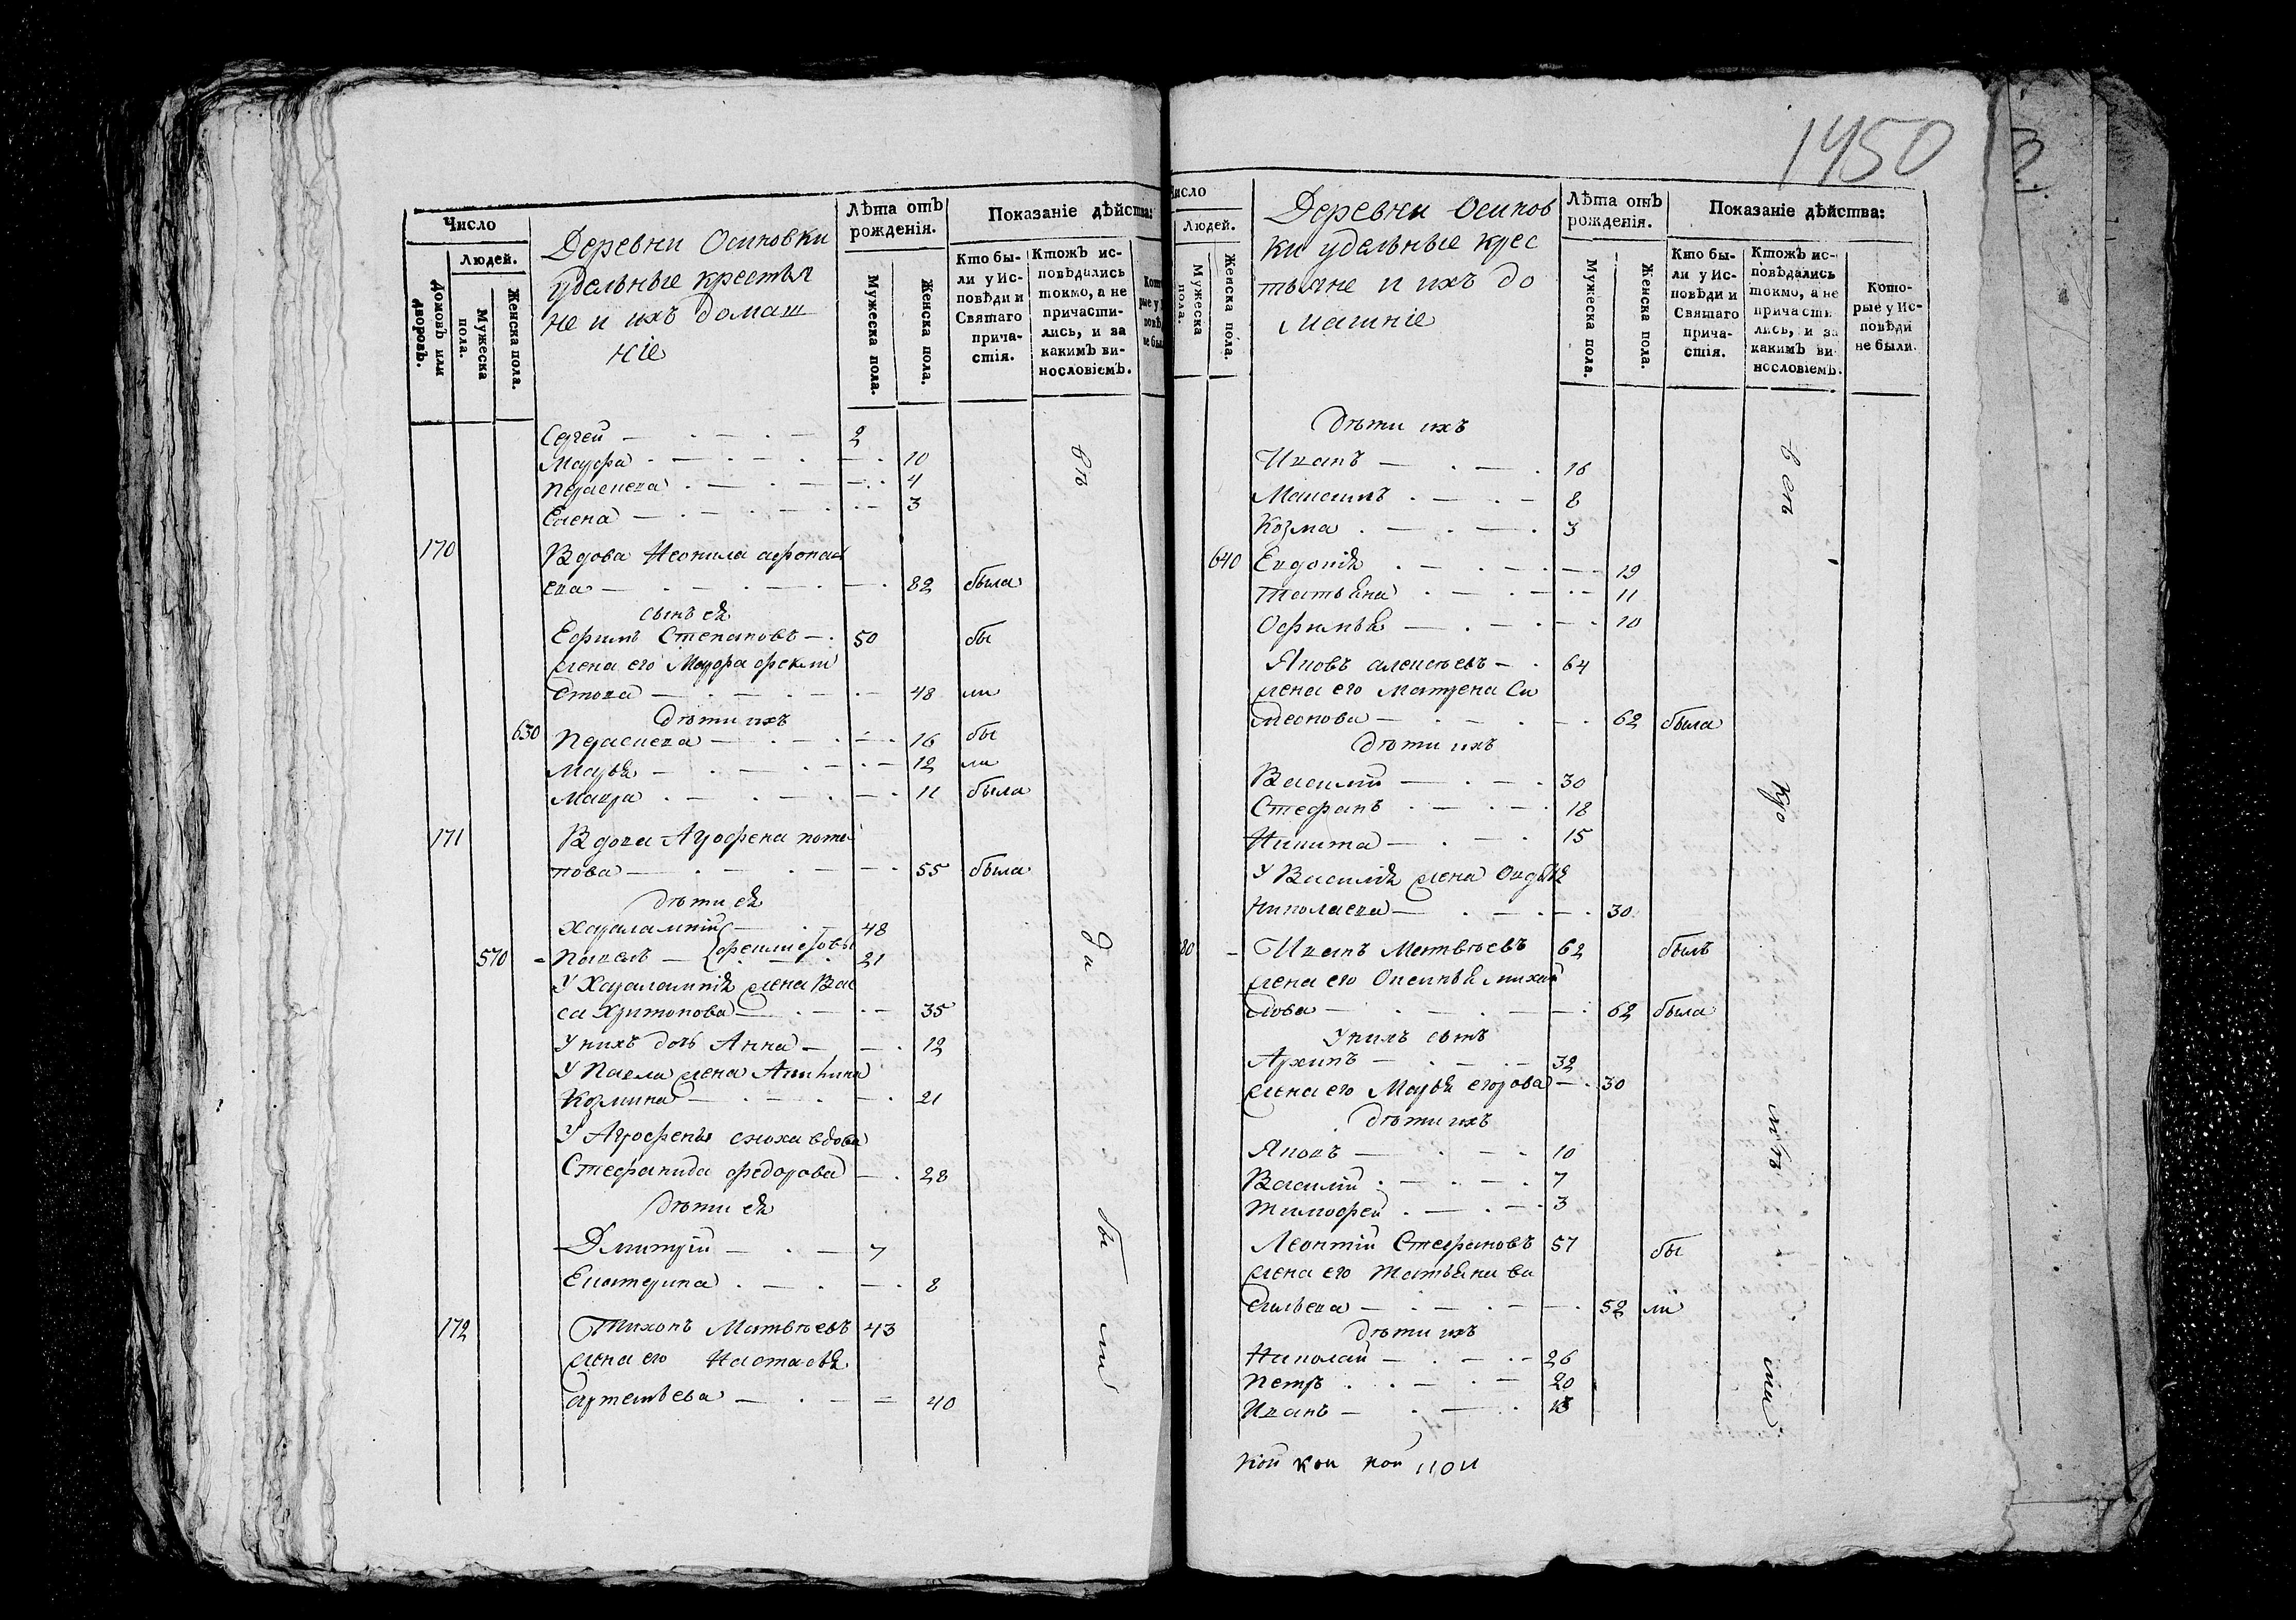 Число
Людей.
Домовъ или дворовъ.
Мужеска пола.
Женска пола.
Деревни Осиновки
удельные крестья
не и ихъ домаш
ніе
Лѣта отъ рожденія.
Мужеска пола.
Женска пола.
Показаніе дѣйства:
Кто были у Исповѣди и Святаго причастія.
Ктожъ исповѣдались токмо, а не причастились, и за какимъ винословіемъ.
Сергей — 2
Марфа — 10
Параскева — 4
Елена — 3
170 Вдова Неонила афонась
ева — 82 была
сынъ ея
Ефимъ Степановъ — 50 бы
жена его Марфа фекли
стова — 48 ли
дѣти ихъ
630 Параскева — 16 бы
Марья — 12 ли
Мавра — 11 была
171 Вдова Агрофена пота
пова — 55 была
дѣти ея
Харалампій — 48
570 Павелъ — 21
У Харалампія жена Вас
са Харитонова — 35
У нихъ дочь Анна — 12
У Павла жена
Козмина — 21
У Агрофены сноха вдова
Стефанида федорова — 28
дѣти ея
Дмитрій — 7
Екатерина — 8
172 Тихонъ Матвѣевъ 43
жена его Настасья
артемьева — 40
1450
Число
Людей.
Мужеска пола.
Женска пола.
Деревни Осинов
ки удельные крес
тьяне и ихъ до
машніе
Лѣта отъ рожденія.
Мужеска пола.
Женска пола.
Показаніе дѣйства:
Кто были у Исповѣди и Святаго причастія.
Ктожъ исповѣдались токмо, а не причастились, и за какимъ винословіемъ.
Которые у Исповѣди не были.
дѣти ихъ
Иванъ — 16
Максимъ — 8
Козма — 3
640 Евдокія — 19
Татьяна — 11
Офимья — 10
Яковъ алексѣевъ — 64
жена его Матрена Си
меонова — 62 была
дѣти ихъ
Василій — 30
Стефанъ — 18
Никита — 15
У Василія жена Овдотья
Николаева — 30
Иванъ Матвѣевъ 62 былъ
жена его Аксинья михай
лова — 62 была
У нихъ сынъ
Архипъ — 32
жена его Марья егорова — 30
дѣти ихъ
Яковъ — 10
Василій — 7
Тимофей — 3
Леонтій Стефановъ 57 бы
жена его Татьяна са
вельева — 52 ли
дѣти ихъ
Николай — 26
Петръ — 20
Иванъ — 13
кой кои кой